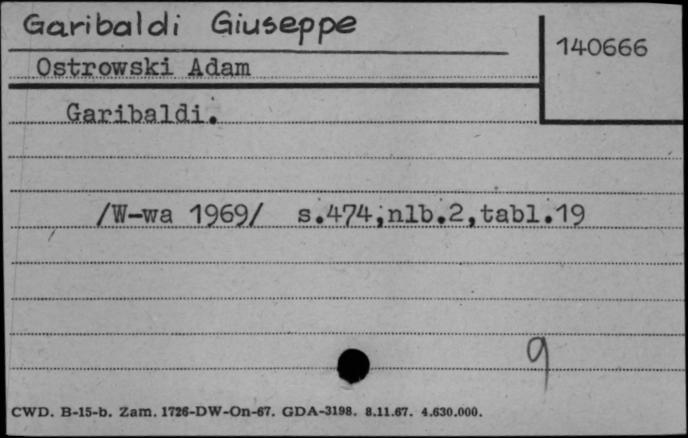 Garibaldi Giuseppe
140666
Ostrowski Adam
Garibaldi.
/W-wa 1969/ s.474,nlb.2,tabl.19
9
CWD. B-15-b. Zam. 1726-DW-On-67. GDA-3198. 8.11.67. 4.630.000.